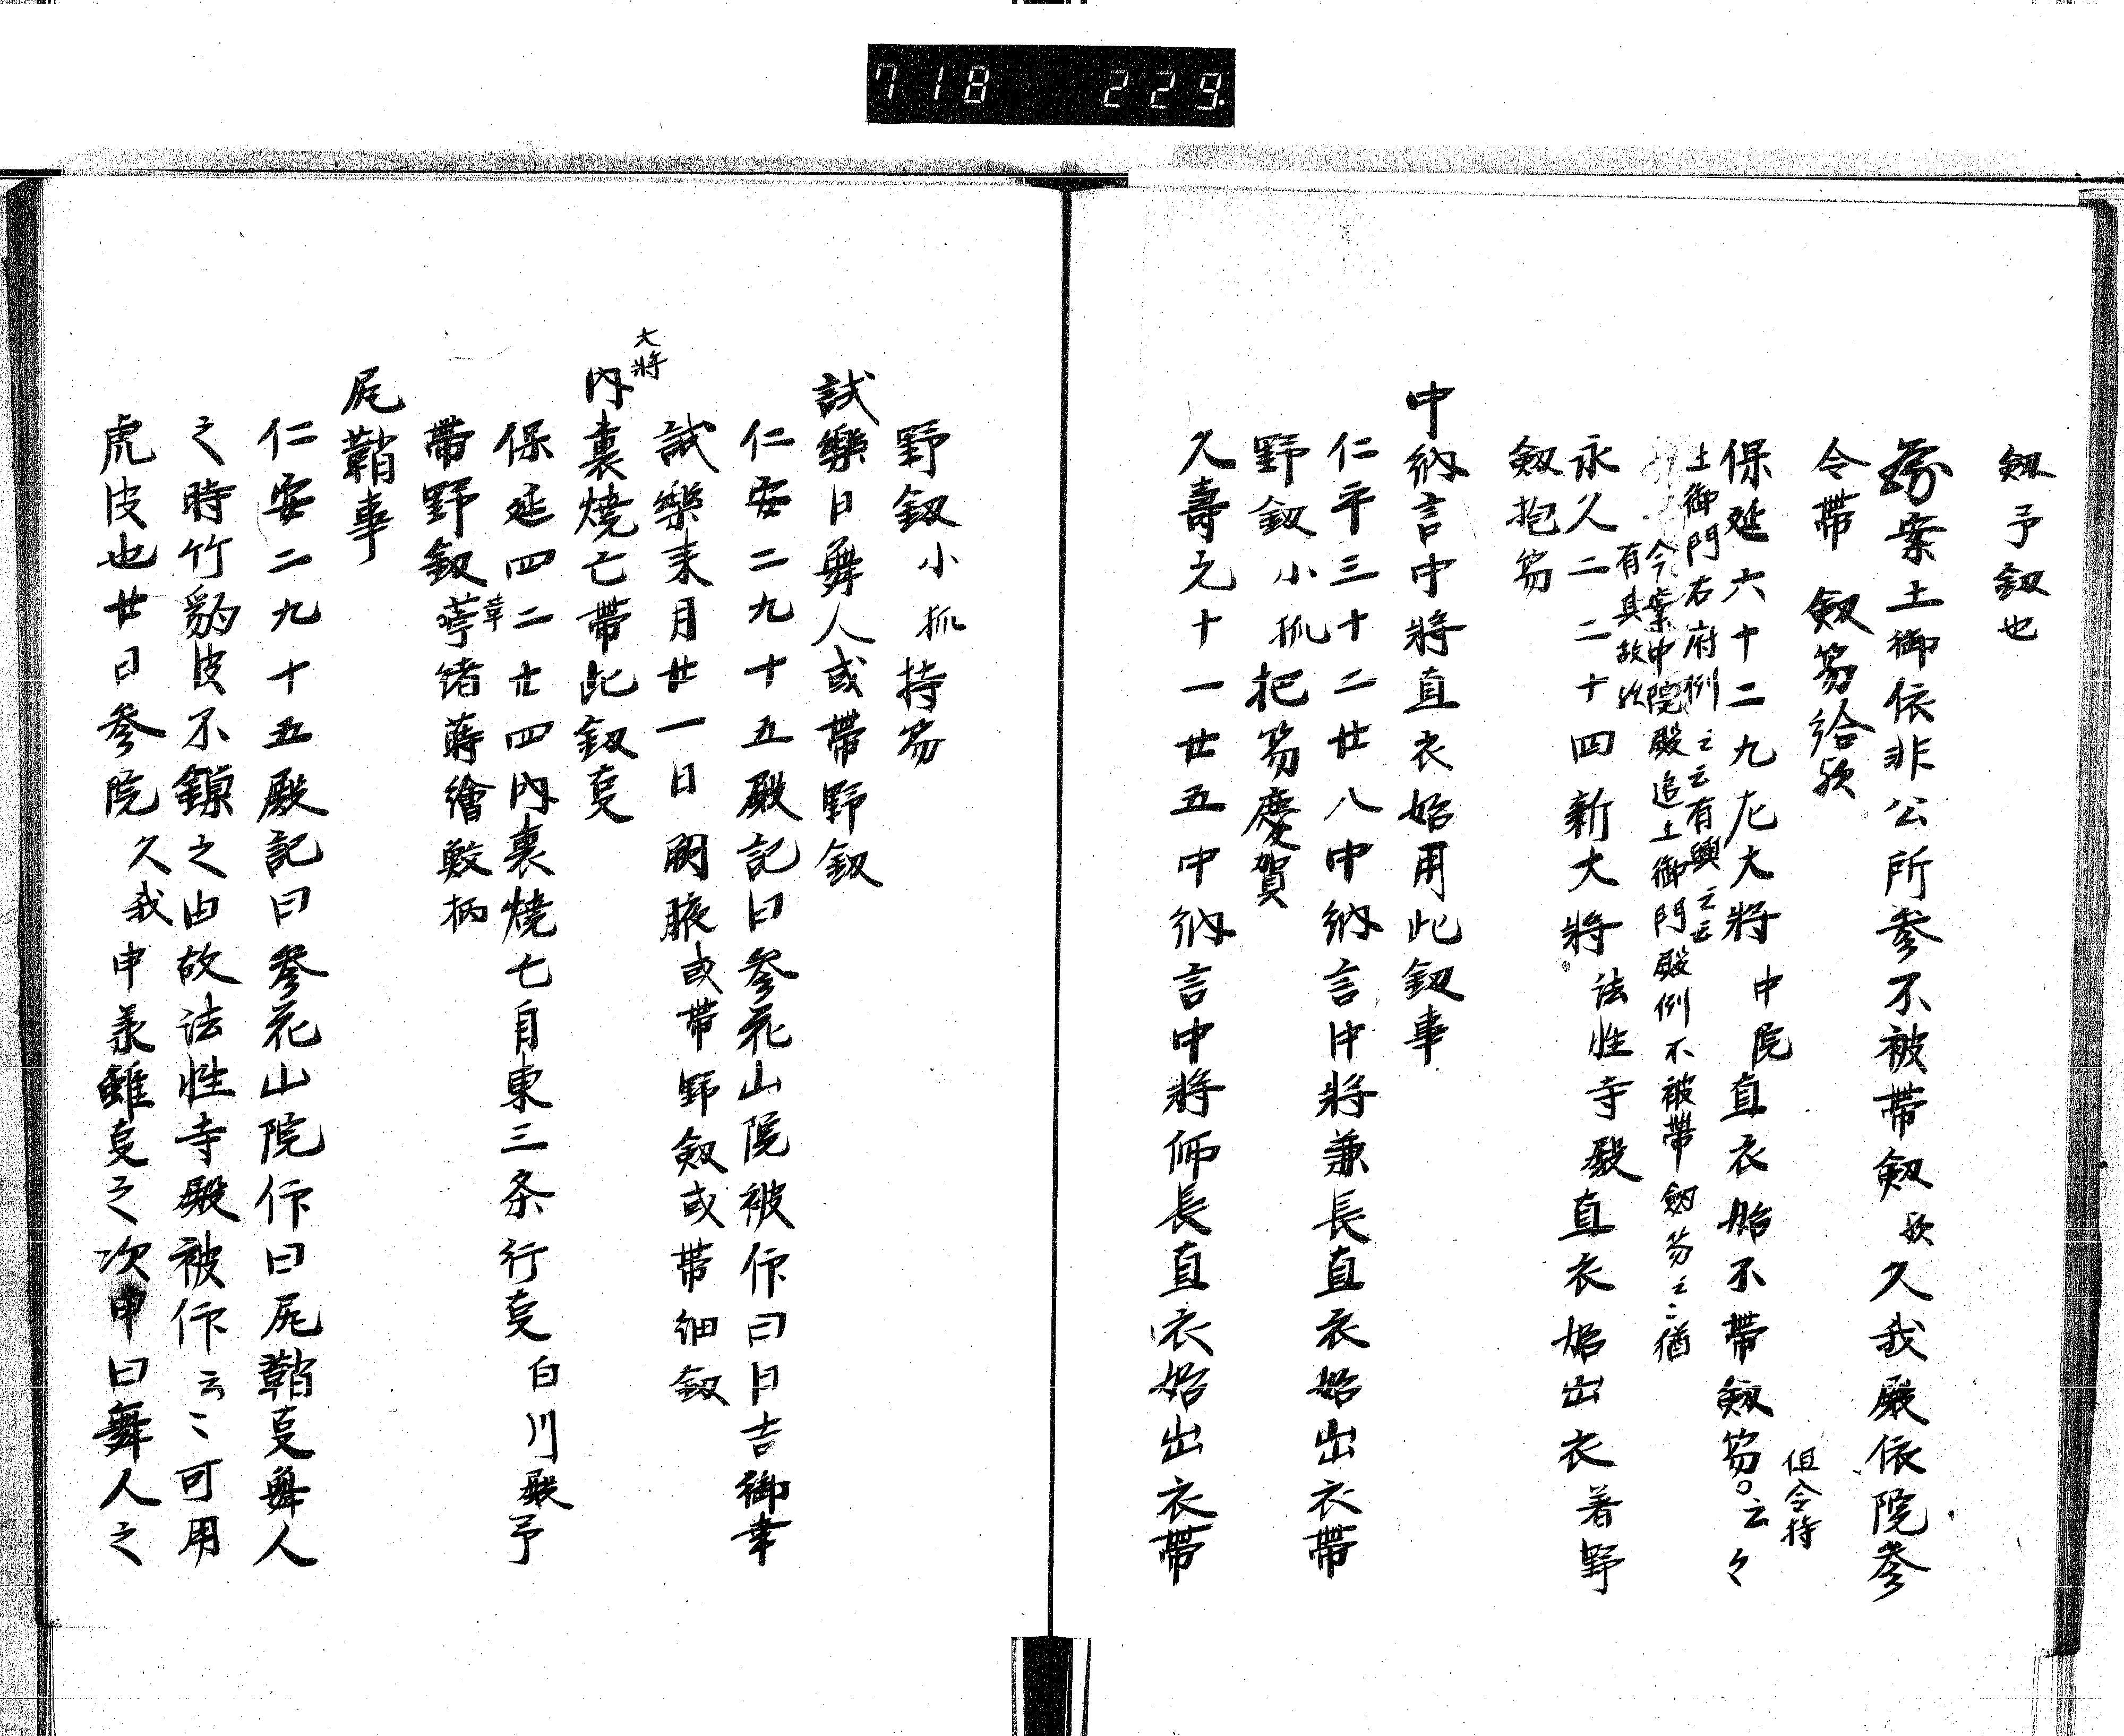 718 229.
釼予釼也
案土御依非公所参不被帯釼欤久我殿依院参
令帯釼笏給欤
保延六十二九左大将中院直衣始不帯釼笏。云々
但令持
土御門右府例云云有興云云
今案中院殿追土御門殿例不被帯釼笏云〻猶
有其故
永久二二十四新大将法性寺殿直衣始出衣著野
釼抱笏
中納言中将直衣始用此釼事
仁平三十二廿八中納言中将兼長直衣始出衣帯
野釼小狐把笏慶賀
久壽元十一廿五中納言中将師長直衣始出衣帯
野釼小狐持笏
試樂日舞人或帯野釼
仁安二九十五殿記曰参花山院被仰曰日吉御幸
試樂来月廿一日闕腋或帯野釼或帯細釼
大将
内裏焼亡帯此釼事
保延四二廿四内裏焼亡自東三条行事白川殿予
帯野釼蒔繪鮫柄
尻鞘事
仁安二九十五殿記曰参花山院仰曰尻鞘事舞人
之時竹豹皮不鎮之由故法性寺殿被仰云〻可用
虎皮也廿日参院久我申承雖事之次申曰舞人之